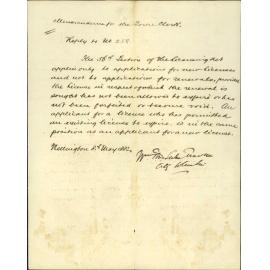 Memorandum for the Town Clerk.
Reply to No 258.
The 56th Section of the Licensing Act
applies only to applications for new licenses
and not to applications for renewals, provided
the license in respect of which the renewal is
sought has not been allowed to expire or has
not been forfeited or become void. An
applicant for a license who has permitted
an existing license to expire, is in the same
position as an applicant for a new license.
Wellington 8th May 1882.
City